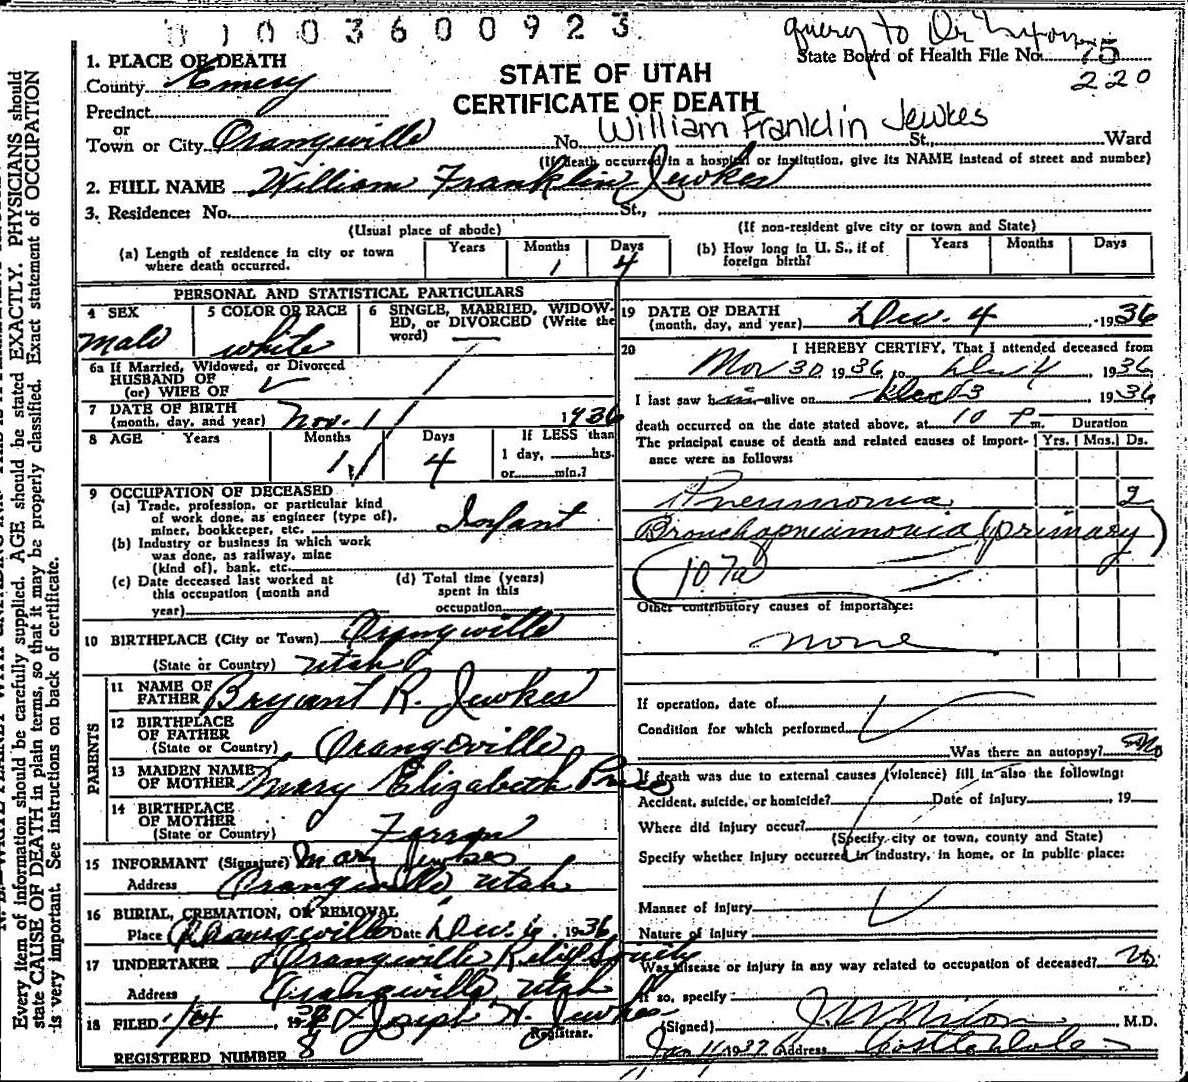 01003600923
query to Dr Nixon
State Board of Health File No. 75
220
1. PLACE OF DEATH
County Emery
STATE OF UTAH
CERTIFICATE OF DEATH
Precinct
or
Town or City Orangeville No. William Franklin Jewkes St., Ward
(If death occurred in a hospital or institution, give its NAME instead of street and number)
2. FULL NAME William Franklin Jewkes
3. Residence: No. St.,
(Usual place of abode) (If non-resident give city or town and State)
(a) Length of residence in city or town where death occurred. Years Months 1 Days 4
(b) How long in U. S., if of foreign birth? Years Months Days
PERSONAL AND STATISTICAL PARTICULARS
4 SEX Male
5 COLOR OR RACE white
6 SINGLE, MARRIED, WIDOWED, or DIVORCED (Write the word)
6a If Married, Widowed, or Divorced
HUSBAND OF
(or) WIFE OF
7 DATE OF BIRTH
(month, day, and year) Nov. 1 1936
8 AGE Years Months 1 Days 4
If LESS than
1 day, hrs.
or min.?
9 OCCUPATION OF DECEASED
(a) Trade, profession, or particular kind
of work done, as engineer (type of),
miner, bookkeeper, etc. Infant
(b) Industry or business in which work
was done, as railway, mine
(kind of), bank, etc.
(c) Date deceased last worked at
this occupation (month and
year)
(d) Total time (years)
spent in this
occupation
10 BIRTHPLACE (City or Town) Orangeville
(State or Country) Utah
PARENTS
11 NAME OF
FATHER Bryant R. Jewkes
12 BIRTHPLACE
OF FATHER
(State or Country) Orangeville
13 MAIDEN NAME
OF MOTHER Mary Elizabeth Price
14 BIRTHPLACE
OF MOTHER
(State or Country) Ferron
15 INFORMANT (Signature) Mary Jewkes
Address Orangeville Utah
16 BURIAL, CREMATION, OR REMOVAL
Place Orangeville Date Dec. 6, 1936
17 UNDERTAKER Orangeville Relief Society
Address Orangeville Utah
18 FILED 1/04, 19 Joseph H. Jewkes
Registrar.
REGISTERED NUMBER 8
19 DATE OF DEATH
(month, day, and year) Dec. 4, 1936
20 I HEREBY CERTIFY, That I attended deceased from
Nov 30 1936, to Dec 4 1936,
I last saw him alive on Dec 3 1936
death occurred on the date stated above, at 10 P. m. Duration
The principal cause of death and related causes of importance were as follows: Yrs. Mos. Ds.
Pneumonia 2
Bronchopneumonia (primary)
(107a)
Other contributory causes of importance:
none
If operation, date of
Condition for which performed
Was there an autopsy? No
If death was due to external causes (violence) fill in also the following:
Accident, suicide, or homicide? Date of injury , 19
Where did injury occur?
(Specify city or town, county and State)
Specify whether injury occurred in industry, in home, or in public place:
Manner of injury
Nature of injury
Was disease or injury in any way related to occupation of deceased? No
If so, specify
(Signed) M.D.
Jan 11 1937 Address Castle Dale
Every item of information should be carefully supplied. AGE should be stated EXACTLY. PHYSICIANS should
state CAUSE OF DEATH in plain terms, so that it may be properly classified. Exact statement of OCCUPATION
is very important. See instructions on back of certificate.